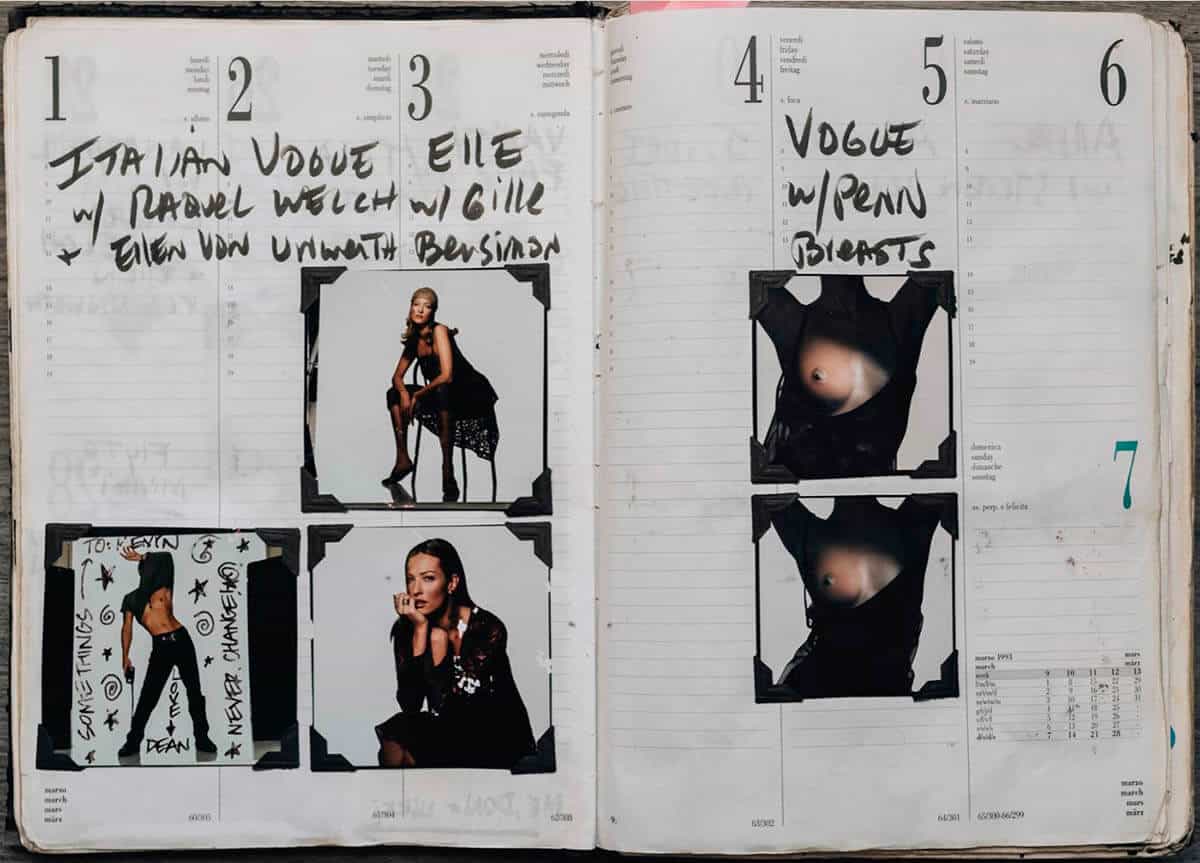 1
lunedì
monday
lundi
montag
s. albino
2
martedì
tuesday
mardi
dienstag
s. simplicio
3
mercoledì
wednesday
mercredi
mittwoch
s. cunegonda
ITALIAN VOGUE
w/ RAQUEL WELCH
+ Ellen Von Unwerth
Elle
w/ Gille
Bensimon
TO: KEVIN
SOMETHINGS
NEVER CHANGE!
DEAN
marzo
march
mars
märz
60/305
61/304
62/303
4
venerdì
friday
vendredi
freitag
s. foca
5
VOGUE
w/Penn
Breasts
sabato
saturday
samedi
samstag
s. marziano
6
domenica
sunday
dimanche
sonntag
ss. perp. e felicita
7
marzo 1993
march
mars
märz
week 9 10 11 12 13
1 8 15 22 29
2 9 16 23 30
3 10 17 24 31
4 11 18 25
5 12 19 26
6 13 20 27
7 14 21 28
9.
63/302
64/301
65/300-66/299
marzo
march
mars
märz